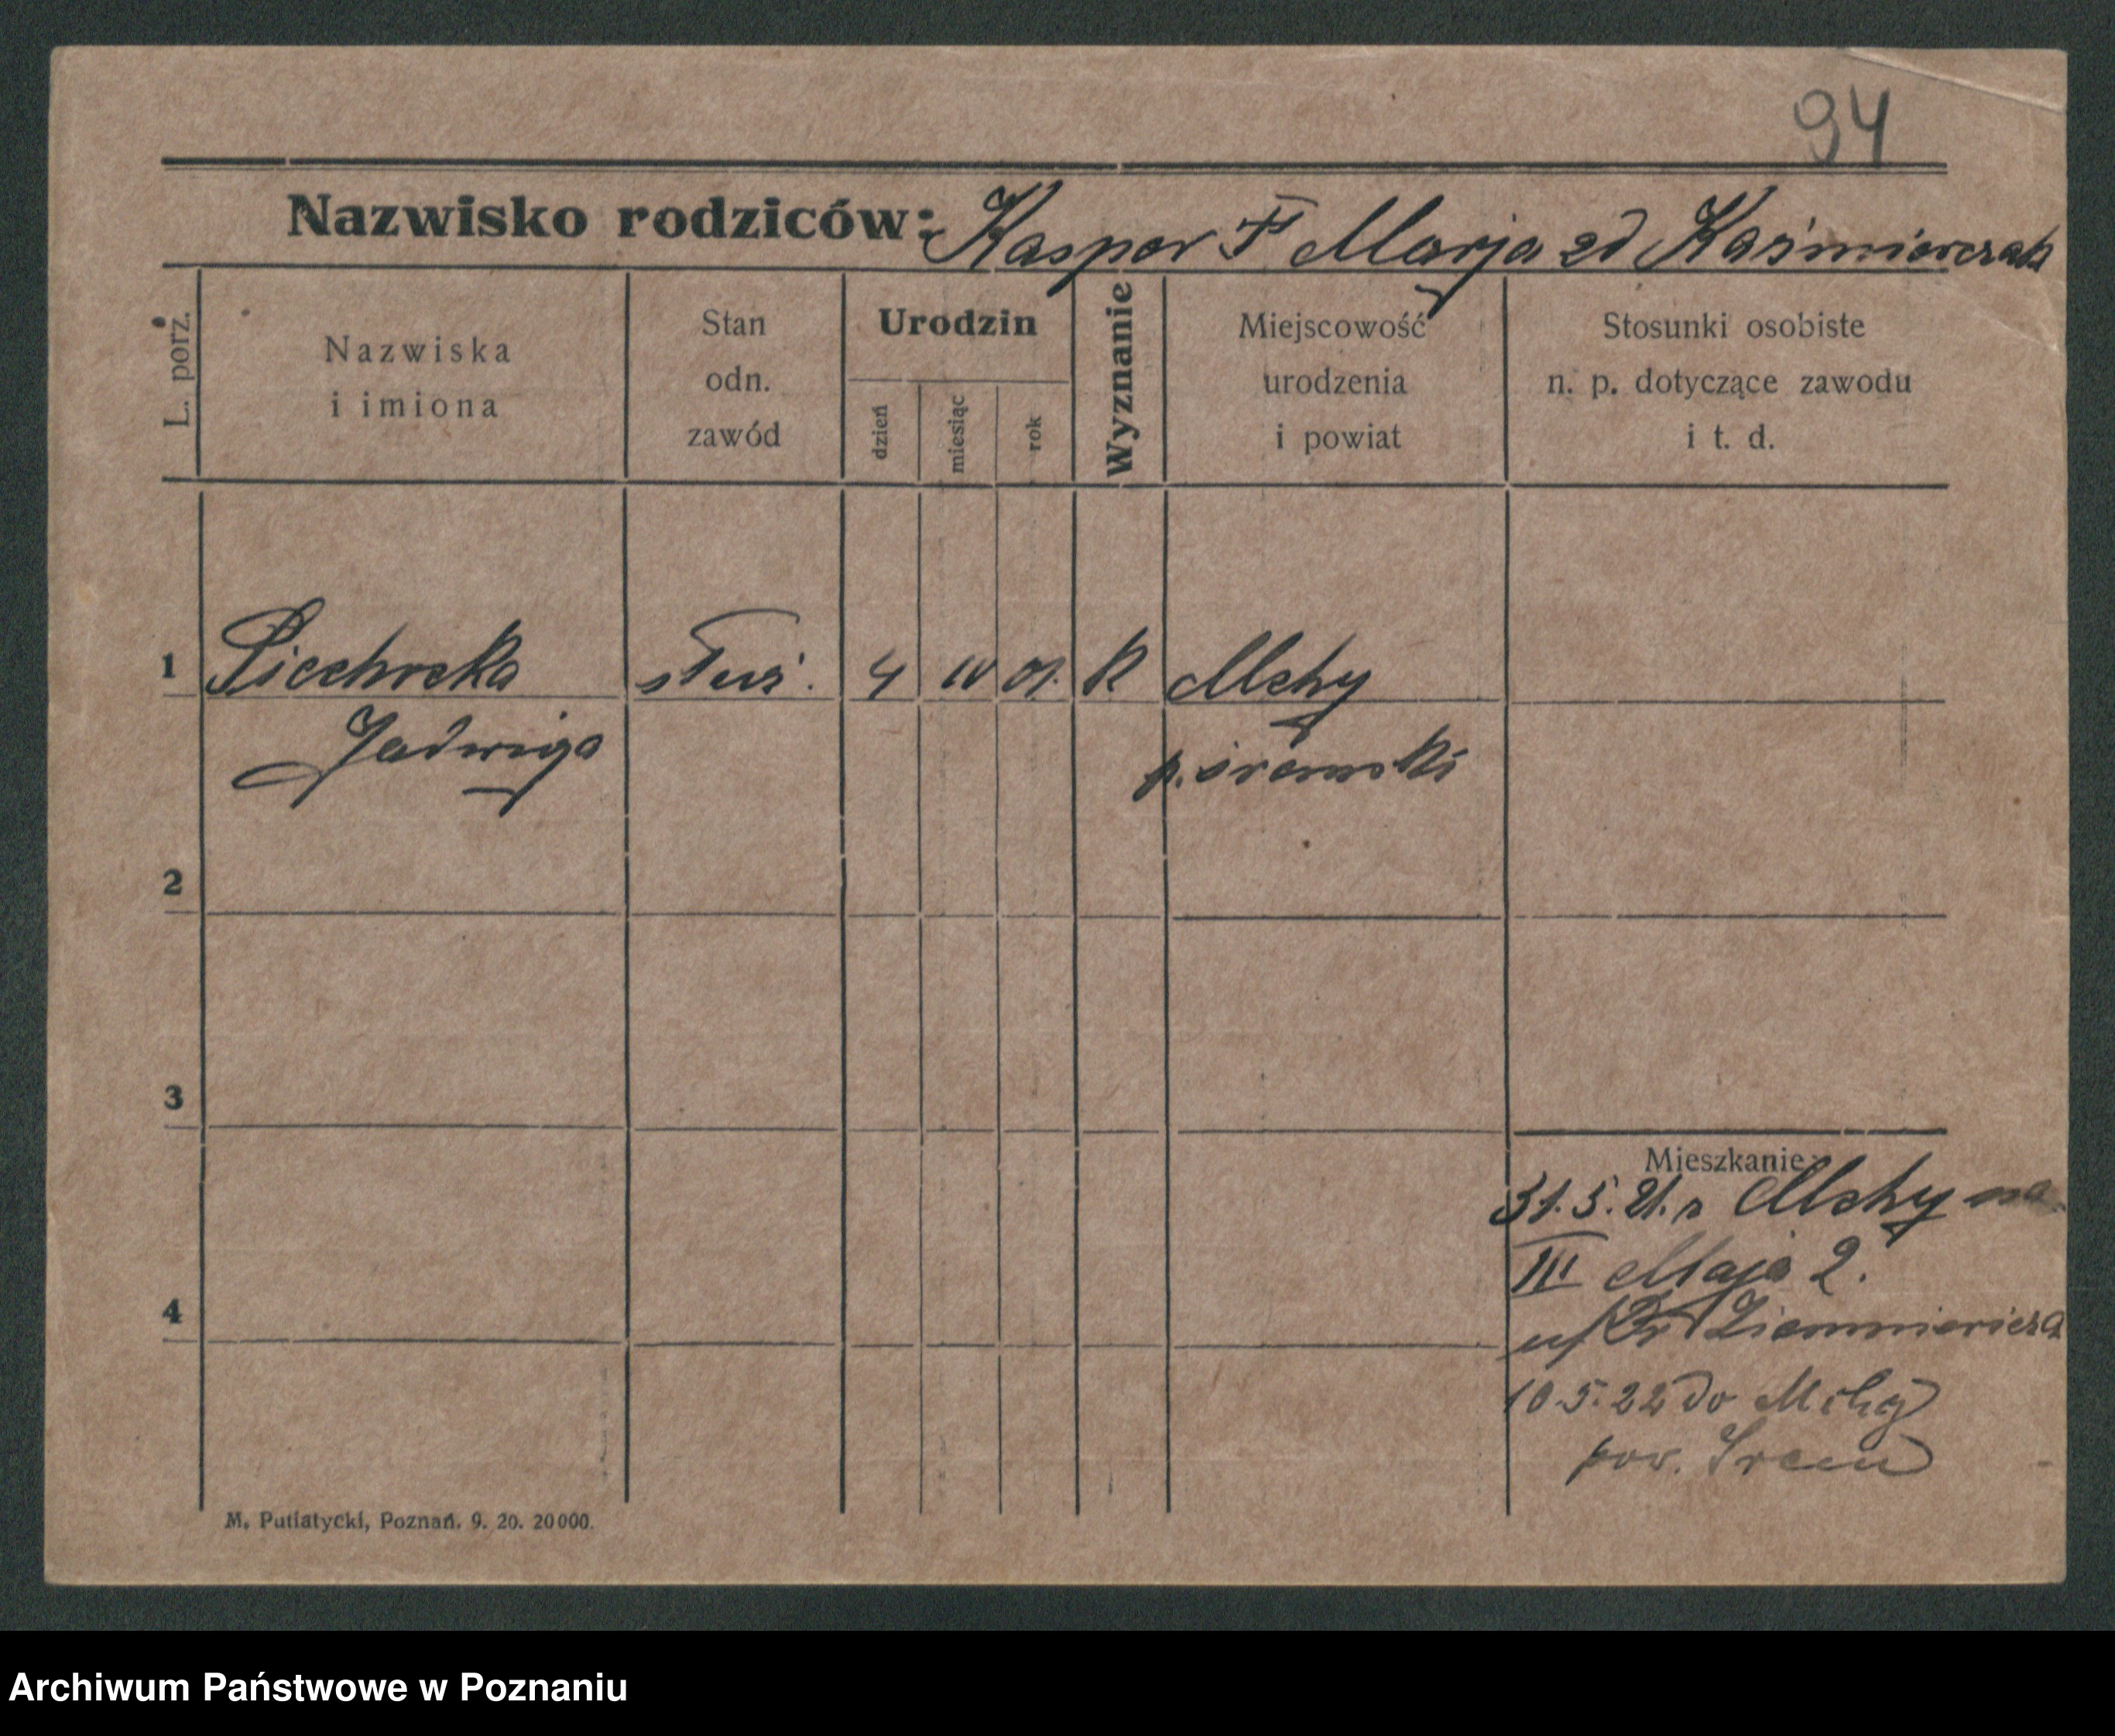 94
Nazwisko rodziców: Kasper Marja zd Kaśmierczak
L. porz.
Nazwiska
i imiona
Stan
odn.
zawód
Urodzin
dzień
miesiąc
rok
Wyznanie
Miejscowość
urodzenia
i powiat
Stosunki osobiste
n. p. dotyczące zawodu
i t. d.
1 Piechocka służ. 4 IV 01. K Mchy
Jadwiga p. śremski
2
3
Mieszkanie:
31.5.21. z Mchy na
III Maja 2.
4
u/ Dr
10.5.22 do Mchy
pow. Śrem
M. Putiatycki, Poznań. 9. 20. 20000.
Archiwum Państwowe w Poznaniu